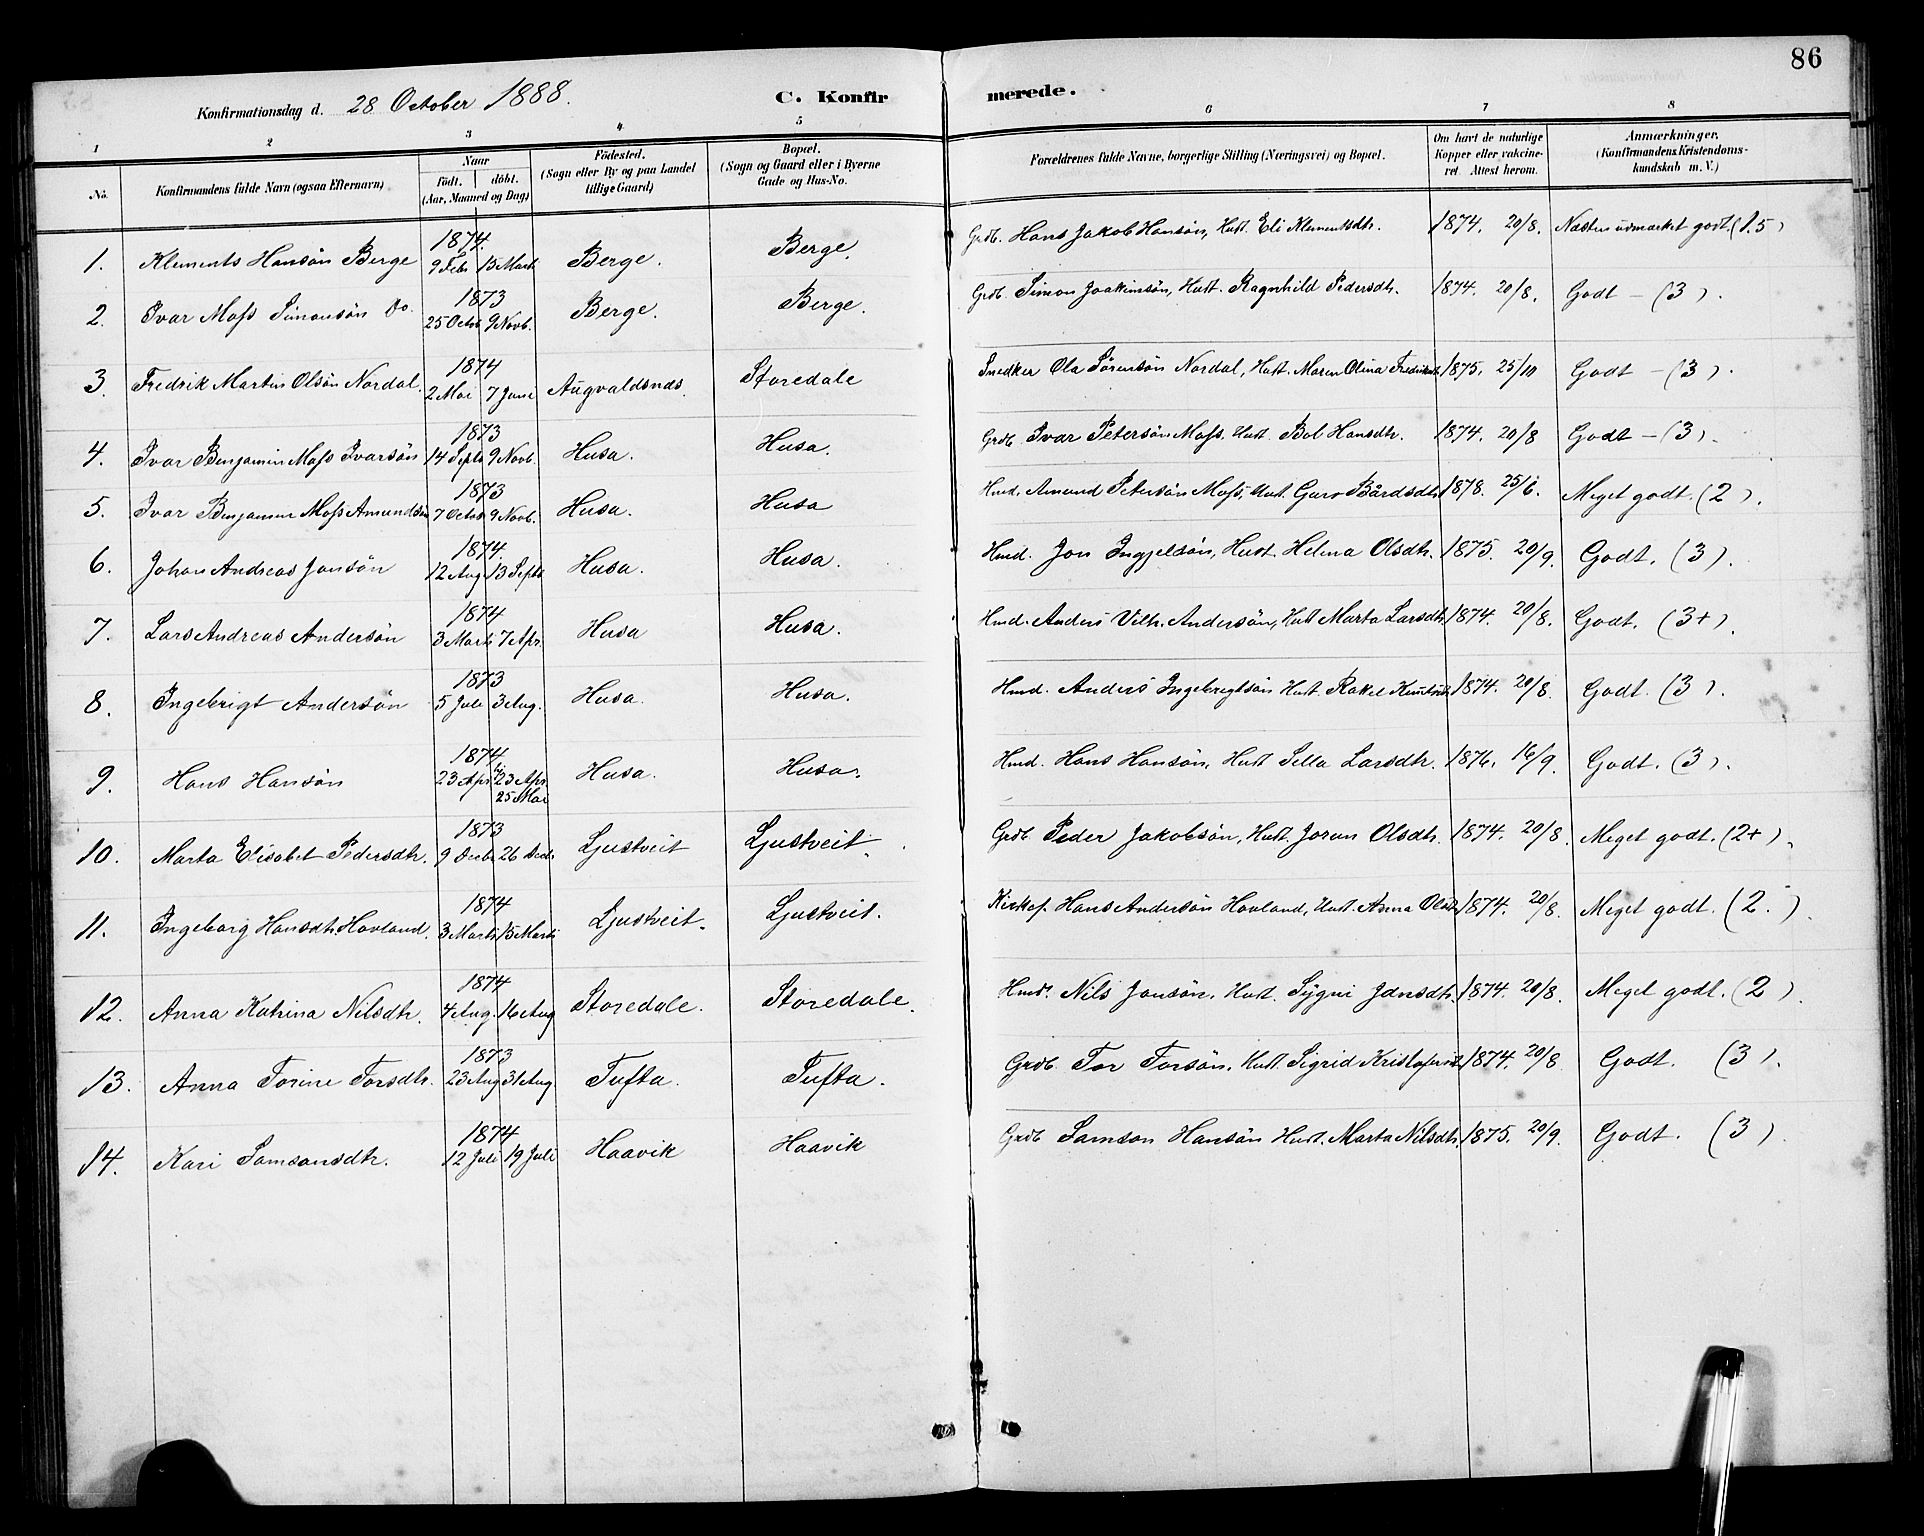 86
Konfirmationsdag d. 28 October 1888. C. Konfirmerede.
1 2 3 4 5 6 7 8
No. Konfirmandens fulde Navn (ogsaa Efternavn) Naar født. døbt. (Aar, Maaned og Dag) Fødested. (Sogn eller By og paa Landet tillige Gaard) Bopæl. (Sogn og Gaard eller i Byerne Gade og Hus-No. Forældrenes fulde Navne, borgerlige Stilling (Næringsvei) og Bopæl. Om havt de naturlige Kopper eller vakcineret. Attest herom. Anmærkninger. (Konfirmandens Kristendomskundskab m. V.)
1. Klements Hansøn Berge 1874. 9 Feb. 15 Marts Berge. Berge. Grdb. Hans Jakob Hansøn, Hust. Eli Klementsdtr. 1874. 20/8. Næsten udmærket godt (1.5)
2. Ivar Moss Simonsøn Do. 1873 25 Octob 9 Novb. Berge. Berge. Grdb. Simon Joakimsøn, Hust. Ragnhild Pedersdtr. 1874. 20/8. Godt – (3).
3. Fredrik Martin Olsøn Nordal. 1874 2 Mai 7 Juni Augvaldsnds. Storedale Snedker Ola Sørensøn Nordal, Hust. Maren Olina Fredriksdtr. 1875. 25/10 Godt – (3).
4. Ivar Benjamin Moss Ivarsøn 1873 14 Septb 9 Novb. Husa. Husa. Grdb. Ivar Petersøn Moss. Hust. Bol Hansdtr. 1874. 20/8 Godt – (3).
5. Ivar Benjamin Moss Amundsøn 1873 7 Octob 9 Novb. Husa. Husa Hmd. Amund Petersøn Moss, Hust. Guro Bårdsdtr. 1878. 25/6. Meget godt. (2).
6. Johan Andreas Jonsøn 1874. 12 Aug. 13 Septb Husa. Husa. Hmd. Jon Ingjelsøn, Hust. Helena Olsdtr. 1875. 20/9. Godt. (3).
7. Lars Andreas Andersøn 1874 3 Marts 7 Apr. Husa Husa. Hmd. Anders Vilh. Andersøn, Hust Marta Larsdtr. 1874. 20/8. Godt. (3+).
8. Ingebrigt Andersøn 1873 5 Juli 3 Aug. Husa. Husa. Hmd. Anders Ingebrigtsøn Hust. Rakel Knutsdtr. 1874. 20/8. Godt. (3).
9. Hans Hansøn 1874 23 Apr. hj. 23 Apr. 25 Mai Husa. Husa. Hmd. Hans Hansøn, Hust Sella Larsdtr. 1876. 16/9. Godt. (3).
10. Marta Elisabet Pedersdtr. 1873 9 Decbr 26 Decb. Ljustveit Ljustveit. Grdb. Peder Jakobsøn, Hust. Jorun Olsdtr. 1874. 20/8. Meget godt. (2+).
11. Ingeborg Hansdtr. Hovland. 1874 3 Marts 15 Marts Ljustveit. Ljustveit. Hans Andersøn Hovland, Hust. Anna Olsdtr. 1874. 20/8. Meget godt. (2.).
12. Anna Katrina Nilsdtr. 1874 4 Aug. 16 Aug Storedale. Storedale. Hmd. Nils Jonsøn. Hust. Sygni Jonsdtr. 1874. 20/8. Meget godt. (2).
13. Anna Torine Torsdtr. 1873 23 Aug 31 Aug Tufta. Tufta. Grdb Tor Torsøn. Hust. Sigrid Kristofersdtr. 1874. 20/8 Godt. (3).
14. Kari Samsonsdtr. 1874 12 Juli 19 Juli Haavik Haavik Grdb Samson Hansøn Hust. Marta Nilsdtr. 1875. 20/9. Godt. (3).